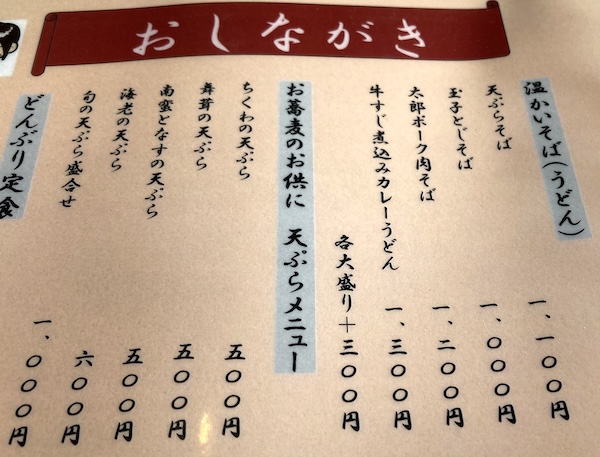 おしながき
温かいそば(うどん)
天ぷらそば 一、一〇〇円
玉子とじそば 一、〇〇〇円
太郎ポーク肉そば 一、二〇〇円
牛すじ煮込みカレーうどん 一、三〇〇円
各大盛り+三〇〇円
お蕎麦のお供に 天ぷらメニュー
ちくわの天ぷら 五〇〇円
舞茸の天ぷら 五〇〇円
南蛮となすの天ぷら 五〇〇円
海老の天ぷら 六〇〇円
旬の天ぷら盛合せ 一、〇〇〇円
どんぶり定食